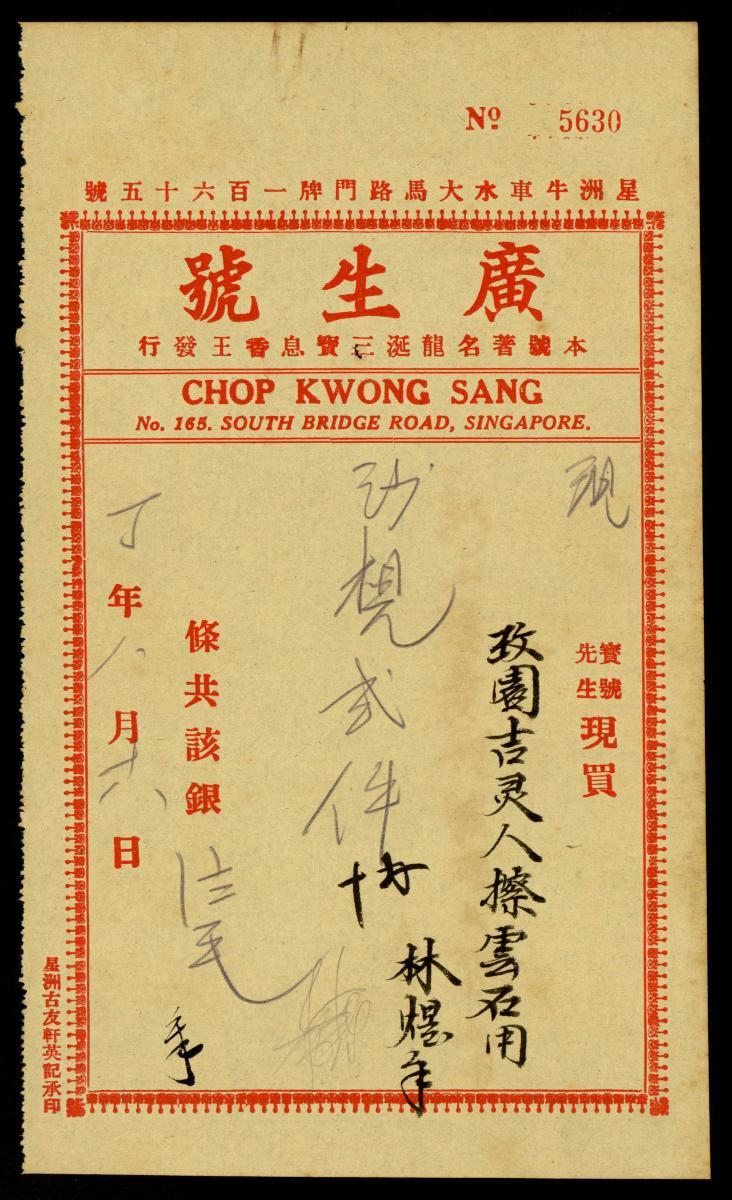 Nº 5630
星洲牛車水大馬路門牌一百六十五號
廣生號
本號著名龍涎三寶息香王發行
CHOP KWONG SANG
No. 165. SOUTH BRIDGE ROAD, SINGAPORE.
現
寶號
先生
現買
孜園吉灵人擦雲石用
林煜手
式件
條共該銀
丁年八月六日
星洲古友軒英記承印